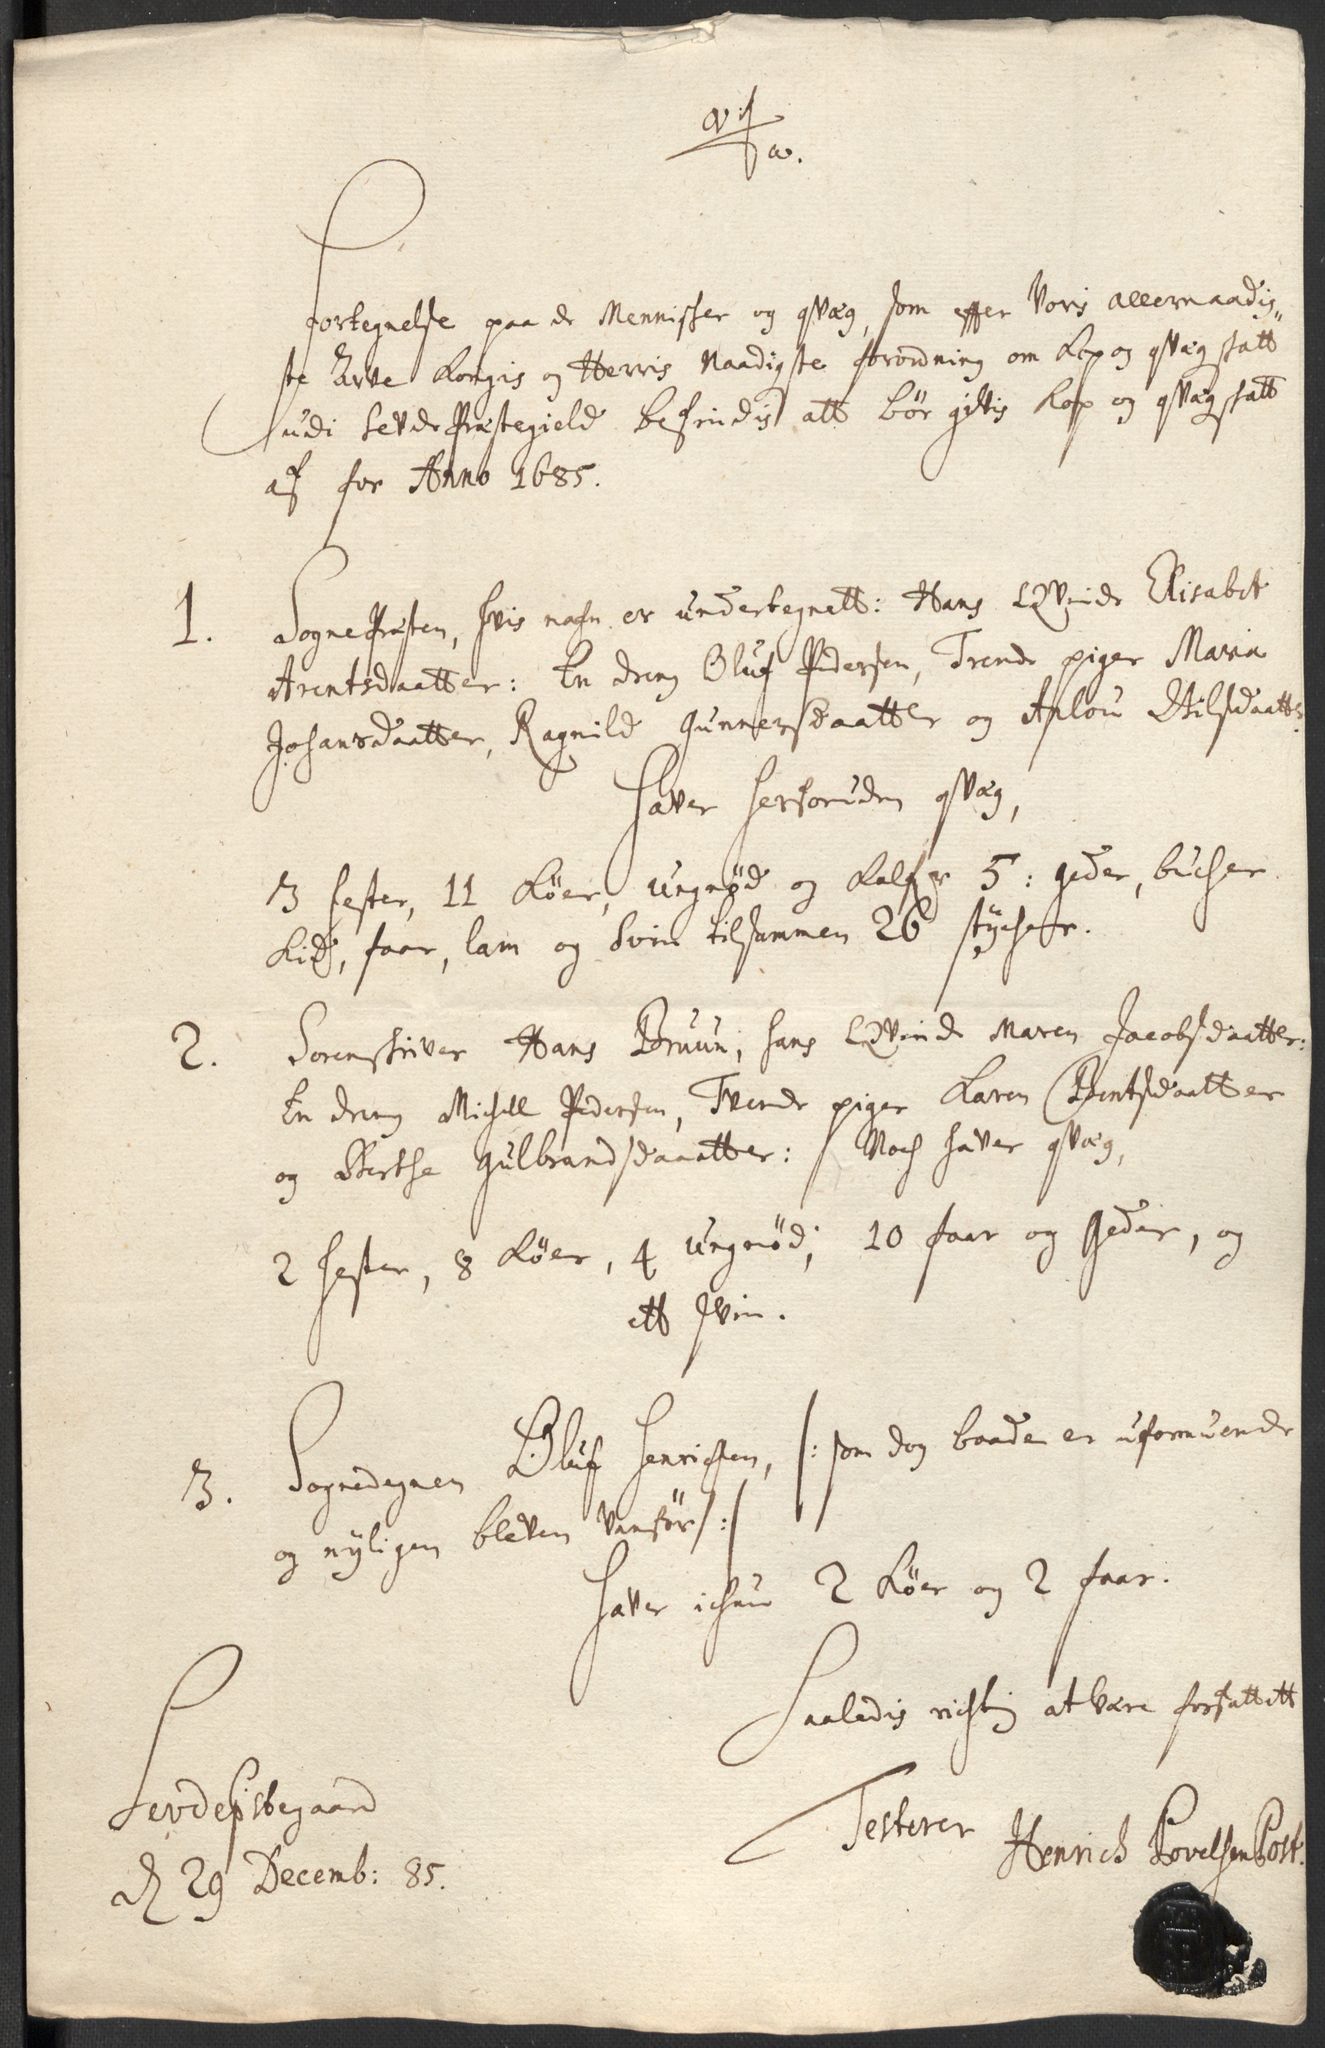 Fortegnelse paa de Mennisker og qvæg, som effter Voris allernaadig,,
ste Arve Kongis og Herris Naadigste forordning om Kop og qvæg skatt
udi Sevde Præstegield befindis att bør gifvis Kop og qvægskatt
af for Anno 1685.
1. Sognepræsten, hvis nafn er undertegnett: Hans Qvinde Elisabet
Arentsdaatter: En dreng Oluf Pedersen, Trende piger Maria
Johansdaatter, Ragnild Gunnersdaatter og Aslou Nilsdaatter.
Haver herforuden qvæg,
3 hester, 11 Køer, ungnød og Kalfver 5: geder, bucher
Kid, faar, lam og Svin tilsammen 26 stÿcher.
2. Sorenskriver Hans Bruun, hans Qvinde Maren Jacobsdaatter:
En dreng Michell Pedersen, Tvende piger Karen Bentsdaatter
og Berthe Gulbrandsdaaatter: Noch haver qvæg,
2 hester, 8 Køer, 4 ungnød, 10 faar og Geder, og
ett svin.
3. Sognedegnen Oluf Henrichsen, /: som dog baade er uformuende
og nÿligen bleven vanför :/
Haver ichun 2 Køer og 2 faar.
Saaledis richtig at være forfattett
Sevde Pstegaard
d 29 Decemb: 85.
Testerer
Henrich Povelsen Post.